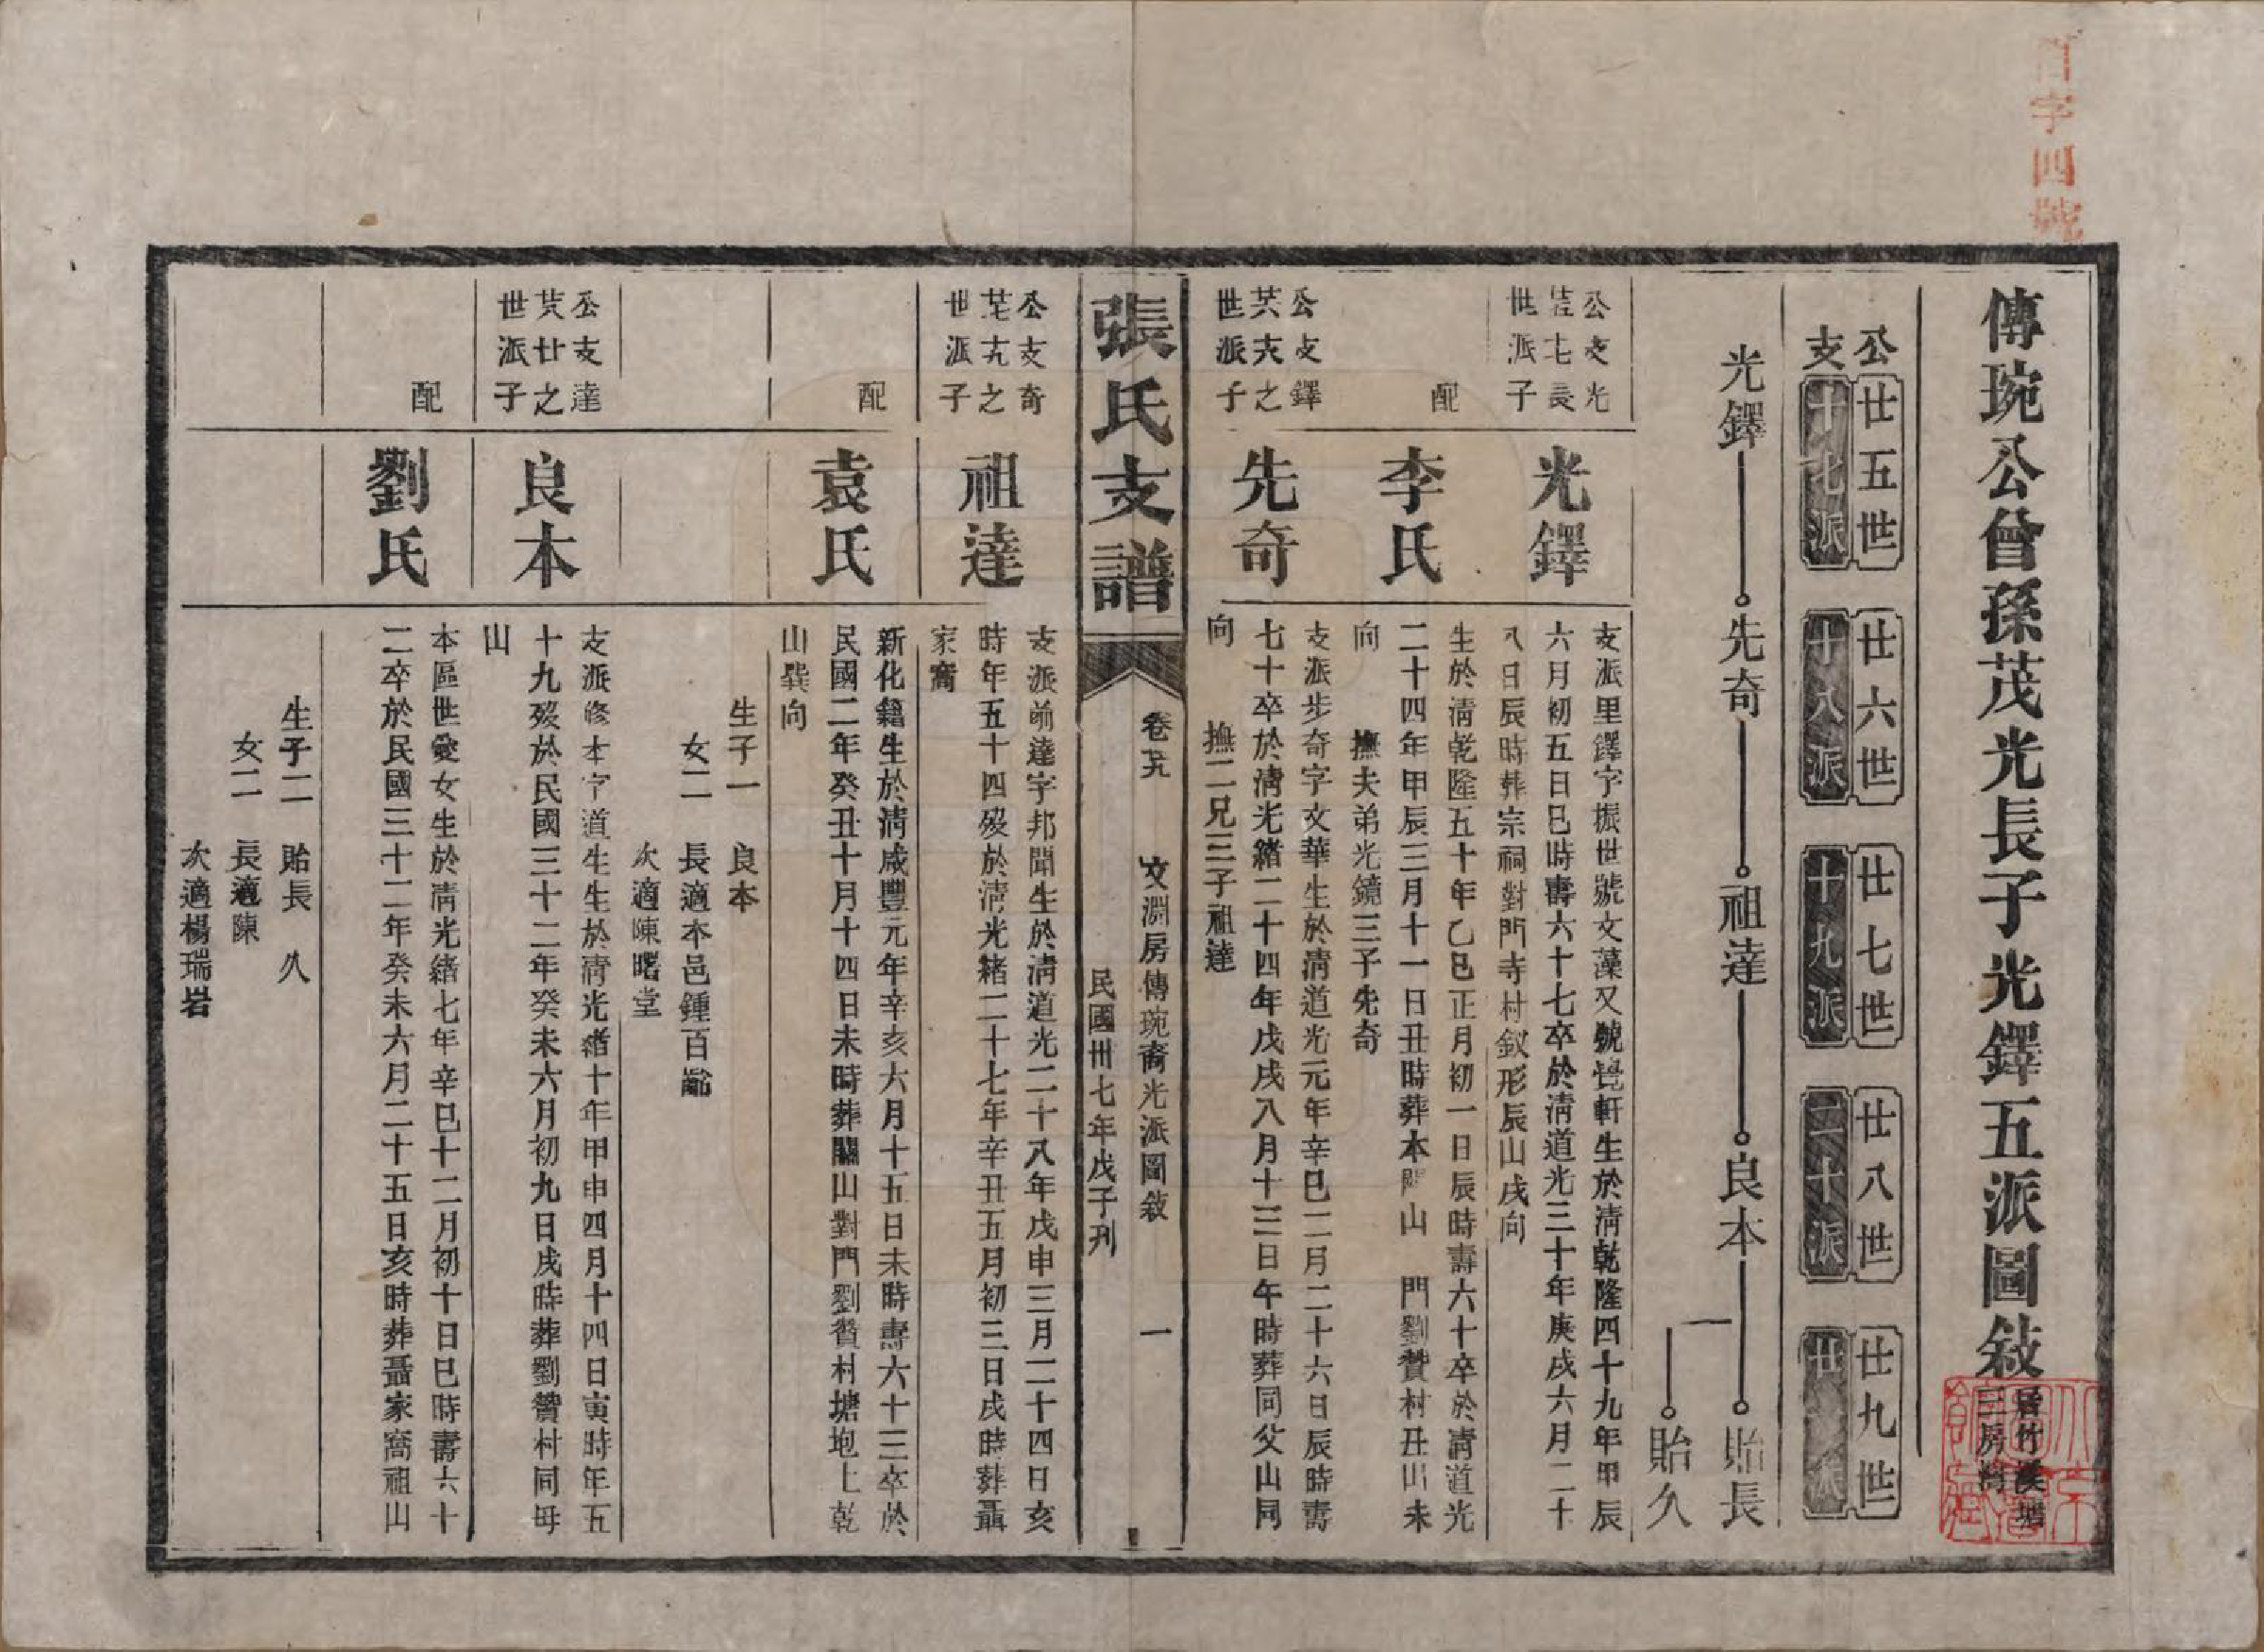 字四號
傳琬公曾孫茂光長子光鐸五派圖敍
居竹溪塘
三房灣
公 廿五世 廿六世 廿七世 廿八世 廿九世
支 十七派 十八派 十九派 二十派 廿 派
光鐸 先奇 祖達 良本 貽長
貽久
公支光
十七長
世派子
光鐸
支派里鐸字振世號文藻又號覺軒生於淸乾隆四十九年甲辰
六月初五日巳時壽六十七卒於淸道光三十年庚戌六月二十
八日辰時葬宗祠對門寺村釵形辰山戌向
配
李氏
生於淸乾隆五十年乙巳正月初一日辰時壽六十卒於淸道光
二十四年甲辰三月十一日丑時葬本 山 門劉贊村丑山未
向 撫夫弟光鏡三子先奇
公支鐸
十六之
世派子
先奇
支派步奇字文華生於淸道光元年辛巳二月二十六日辰時壽
七十卒於淸光緖二十四年戊戌八月十三日午時葬同父山同
向 撫二兄三子祖達
張氏支譜
文淵房傳琬裔光派圖敍 一
民國卅七年戊子刋
公支奇
世派子
祖達
支派 達字邦聞生於淸道光二十八年戊申三月二十四日亥
時年五十四歿於淸光緖二十七年辛丑五月初三日戌時葬聶
家窩
配
袁氏
新化籍生於淸咸豐元年辛亥六月十五日未時壽六十三卒於
民國二年癸丑十月十四日未時葬關山對門劉贊村塘坳上乾
山巽向
生子一 良本
女二 長適本邑鍾百齡
次適陳曙堂
公支達
廿之
世派子
良本
支派修本字道生生於淸光緖十年甲申四月十四日寅時年五
十九歿於民國三十二年癸未六月初九日戌時葬劉贊村同母
山
配
劉氏
本區世愛女生於淸光緖七年辛巳十二月初十日巳時壽六十
二卒於民國三十二年癸未六月二十五日亥時葬聶家窩祖山
生子二 貽長 久
女二 長適陳
次適楊瑞岩